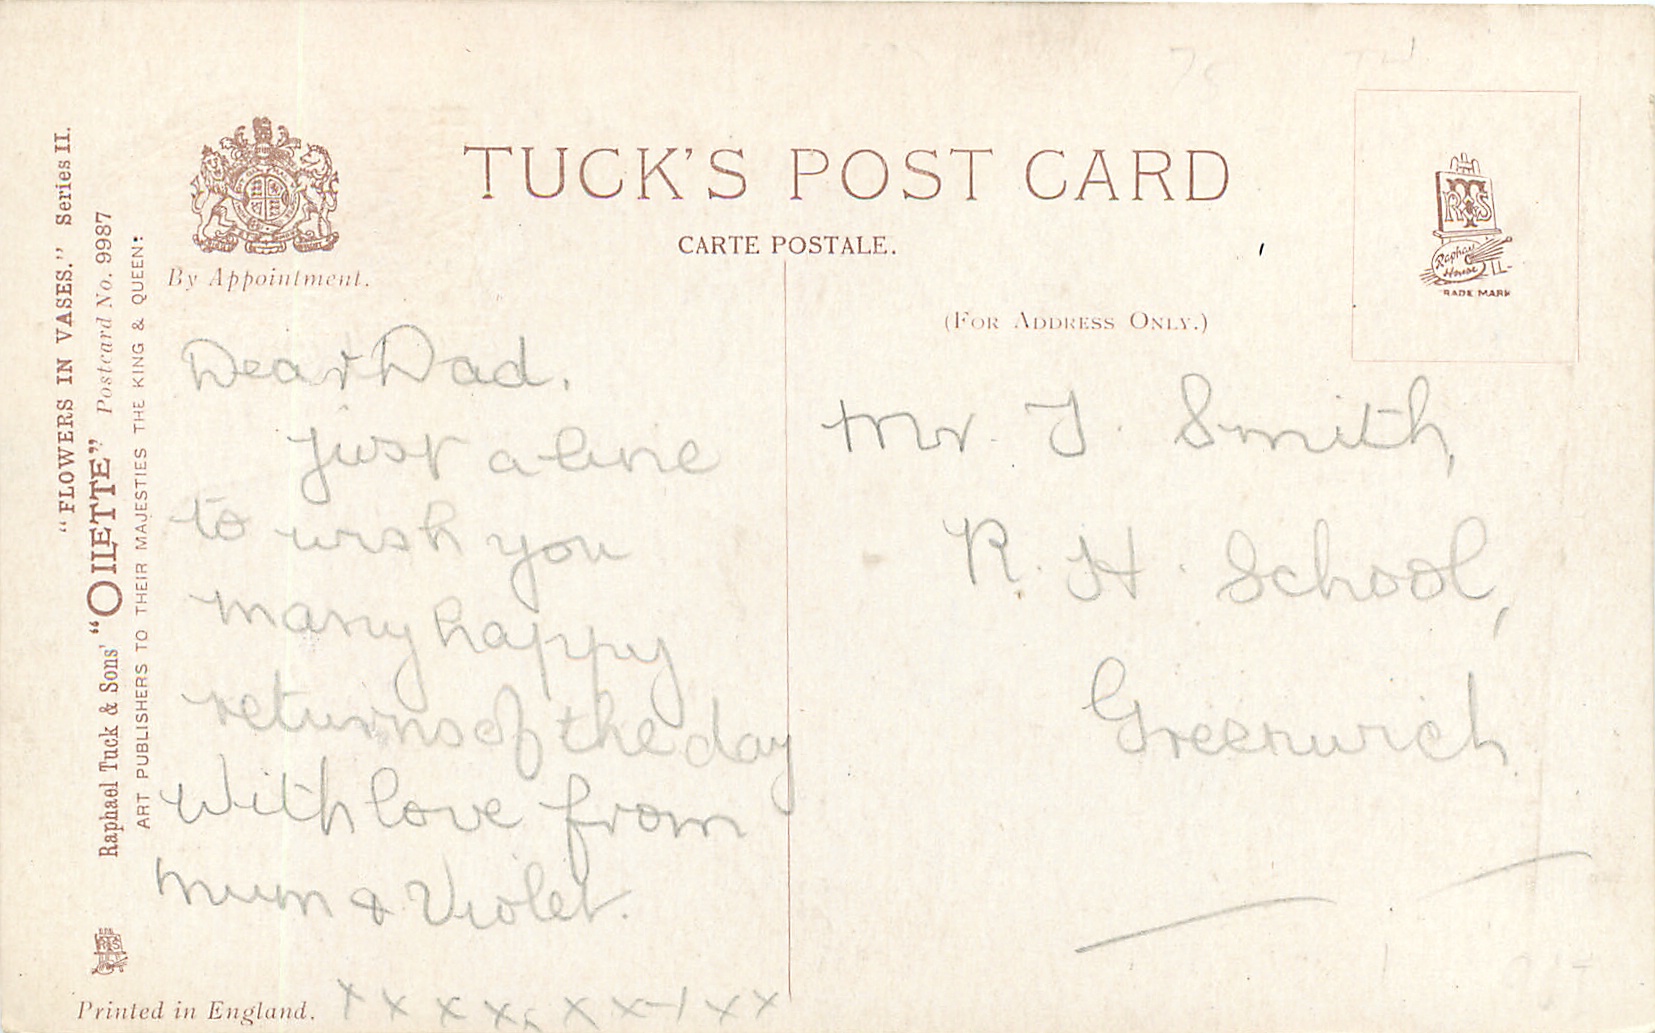 TUCK'S POST CARD
CARTE POSTALE.
(FOR ADDRESS ONLY.)
By Appointment.
"FLOWERS IN VASES." Series II.
Raphael Tuck & Sons' "OILETTE" Postcard No. 9987
ART PUBLISHERS TO THEIR MAJESTIES THE KING & QUEEN:
Dear Dad.
just a line
to wish you
many happy
returns of the day
with love from
Mum & Violet.
x x x x x x x x x
Printed in England.
RTS
Raphael
House
TRADE MARK
Mr. J. Smith,
R. H. School,
Greenwich